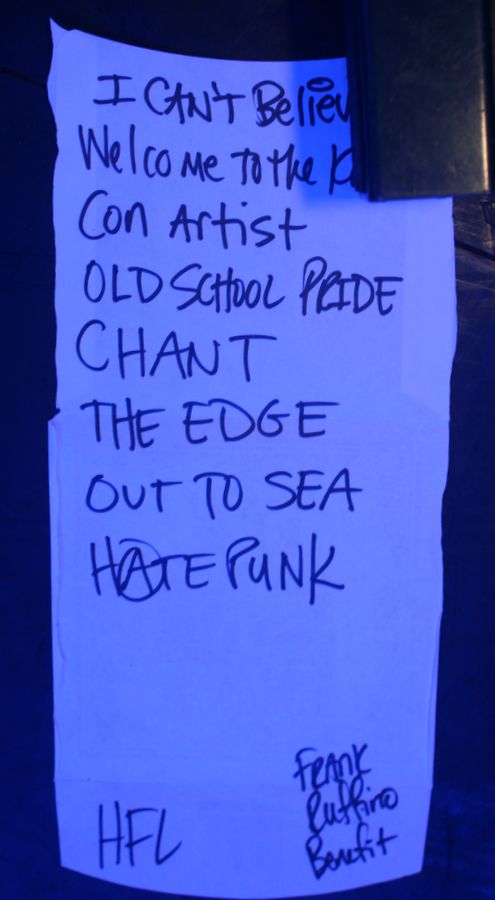 I CAN'T Believ
Welcome to the
Con Artist
OLD SCHOOL PRIDE
CHANT
THE EDGE
OUT TO SEA
HATE PUNK
FRANK
Ruffino
Benefit
HFL